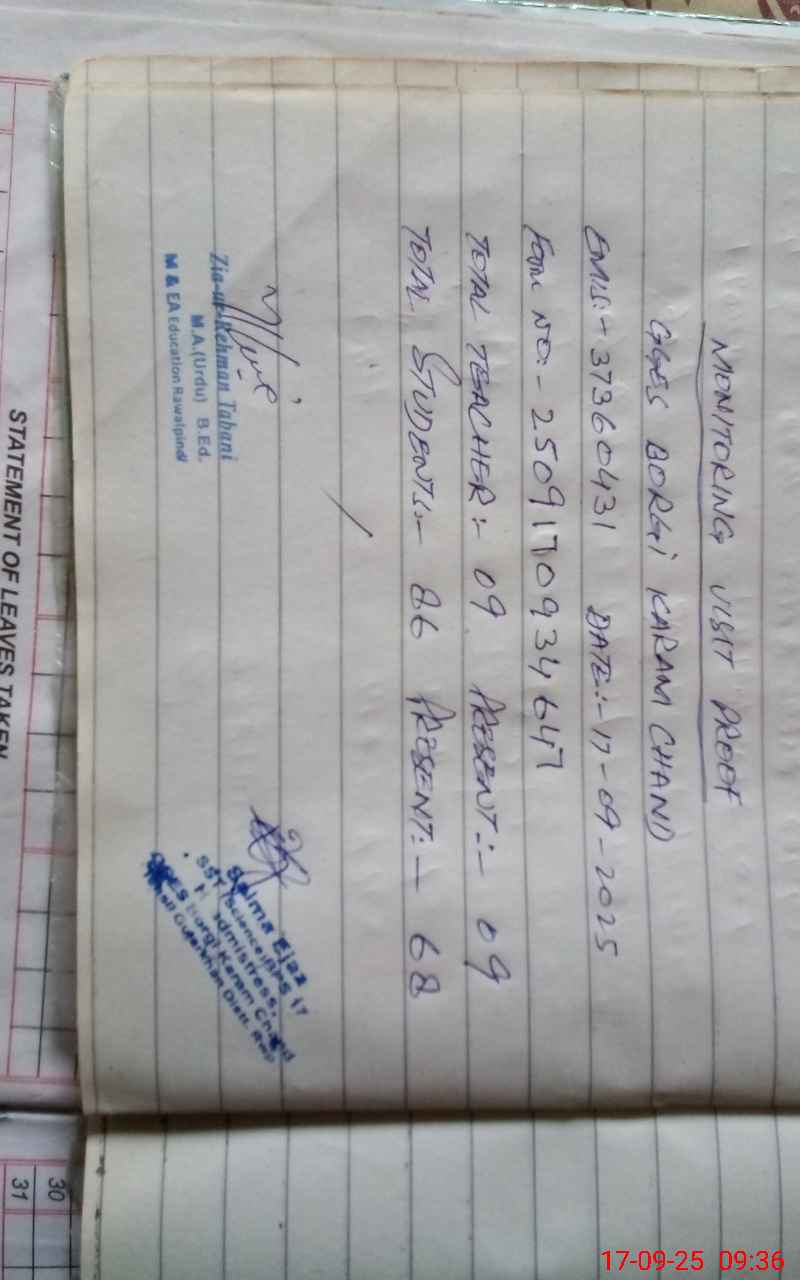 MONITORING VISIT PROOF
GGES BORGI KARAM CHAND
EMIS:- 37360431 DATE:- 17-09-2025
FORM NO:- 2509170934647
TOTAL TEACHER:- 09 PRESENT:- 09
TOTAL STUDENTS:- 86 PRESENT:- 68
Zia-ur-Rehman Tabani
M.A.(Urdu) B.Ed.
M & EA Education Rawalpindi
Salma Ejaz
SST (Science) BPS 17
GGES Borgi Karam Chand
Gujarkhan Distt. Rwp
STATEMENT OF LEAVES TAKEN
30
31
17-09-25 09:36